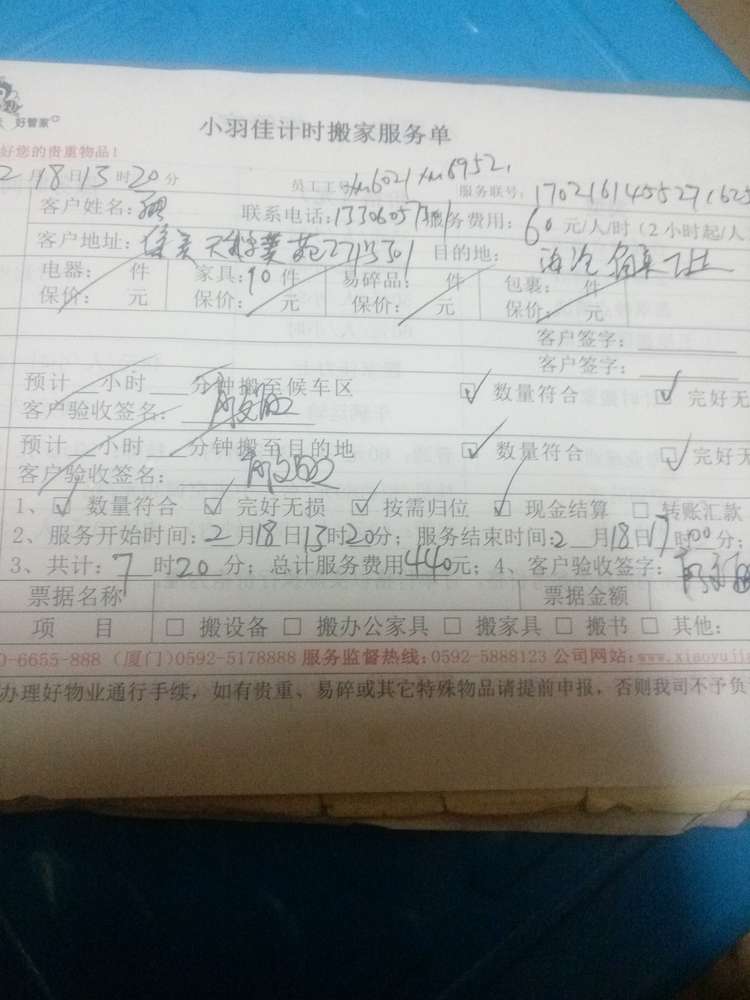 好管家
小羽佳计时搬家服务单
好您的贵重物品！
2月18日13时20分 员工工号 xm6021 xm6952 服务联号：170216145527 1625
客户姓名： 联系电话：13306057 服务费用：60元/人/时（2小时起/人
客户地址： 271 301 目的地：海沧
电器： 件 家具：10件 易碎品： 件 包裹： 件
保价： 元 保价： 元 保价： 元 保价： 元
客户签字：
客户签字：
预计 小时 分钟搬至候车区 ☑ 数量符合 ☑ 完好无
客户验收签名：
预计 小时 分钟搬至目的地 ☑ 数量符合 ☑ 完好无
客户验收签名：
1、☑ 数量符合 ☑ 完好无损 ☑ 按需归位 ☑ 现金结算 □ 转账汇款
2、服务开始时间：2月18日13时20分；服务结束时间：2月18日17时00分；
3、共计：7时20分；总计服务费用440元；4、客户验收签字：
票据名称 票据金额
项 目 □ 搬设备 □ 搬办公家具 □ 搬家具 □ 搬书 □ 其他：
0-6655-888 (厦门)0592-5178888 服务监督热线:0592-5888123 公司网站:www.xiaoyujia
办理好物业通行手续，如有贵重、易碎或其它特殊物品请提前申报，否则我司不予负